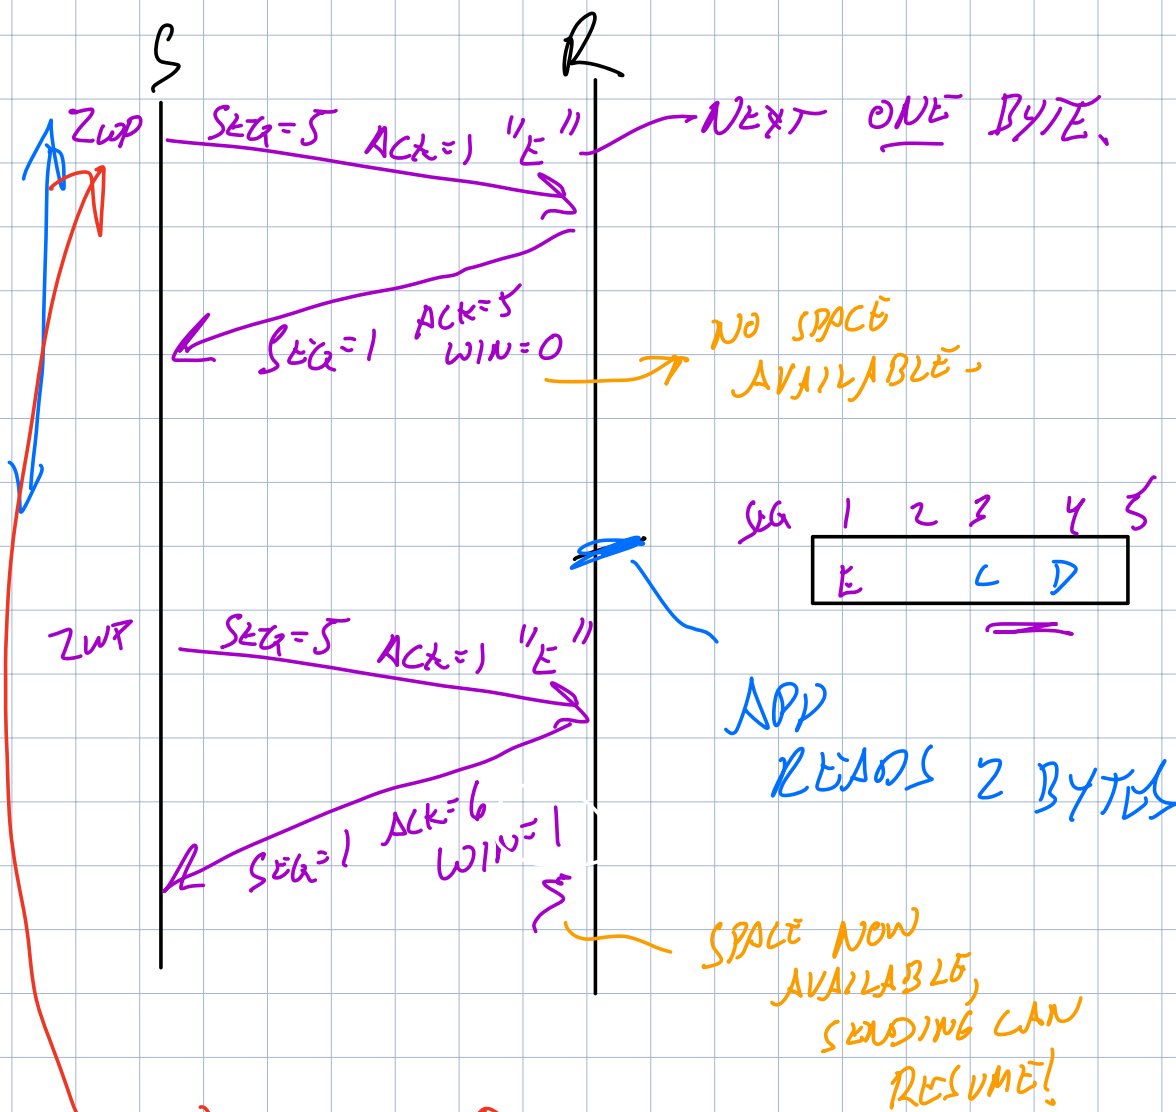 S R
ZWP SEQ=5 ACK=1 "E" NEXT ONE BYTE.
ACK=5
SEQ=1 WIN=0
NO SPACE
AVAILABLE.
SEQ 1 2 3 4 5
E C D
ZWP SEQ=5 ACK=1 "E"
APP
READS 2 BYTES
ACK=6
SEQ=1 WIN=1
SPACE NOW
AVAILABLE,
SENDING CAN
RESUME!